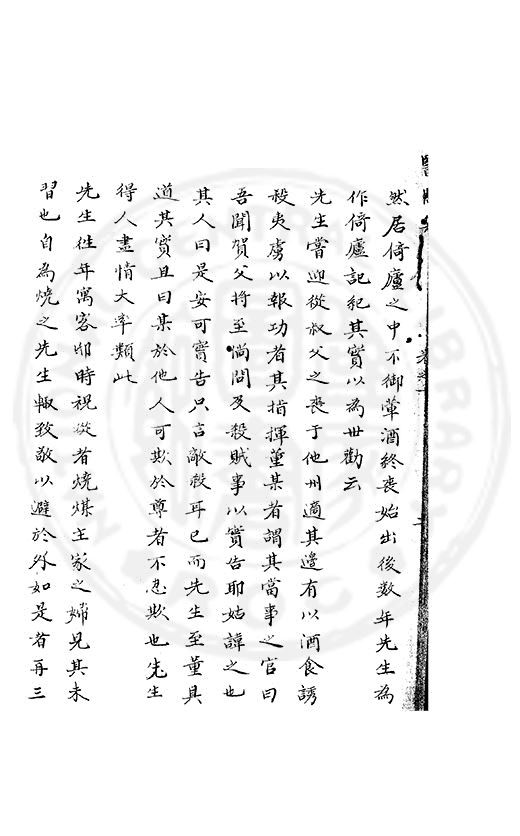 然居倚廬之中不御葷酒終喪始出後数年先生為
作倚廬記紀其實以為世勸云
先生嘗迎從叔父之喪于他州適其邉有以酒食誘
殺夷虜以報功者其指揮董某者謂其當事之官曰
吾聞賀父將至倘問及殺賊事以實告耶姑諱之也
其人曰是安可實告只言敵殺耳已而先生至董具
道其實且曰某於他人可欺於尊者不忍欺也先生
得人盡情大率類此
先生徃年寓客邸時祝從者燒煤主家之婦見其未
習也自為燒之先生輙致敬以避於外如是者再三